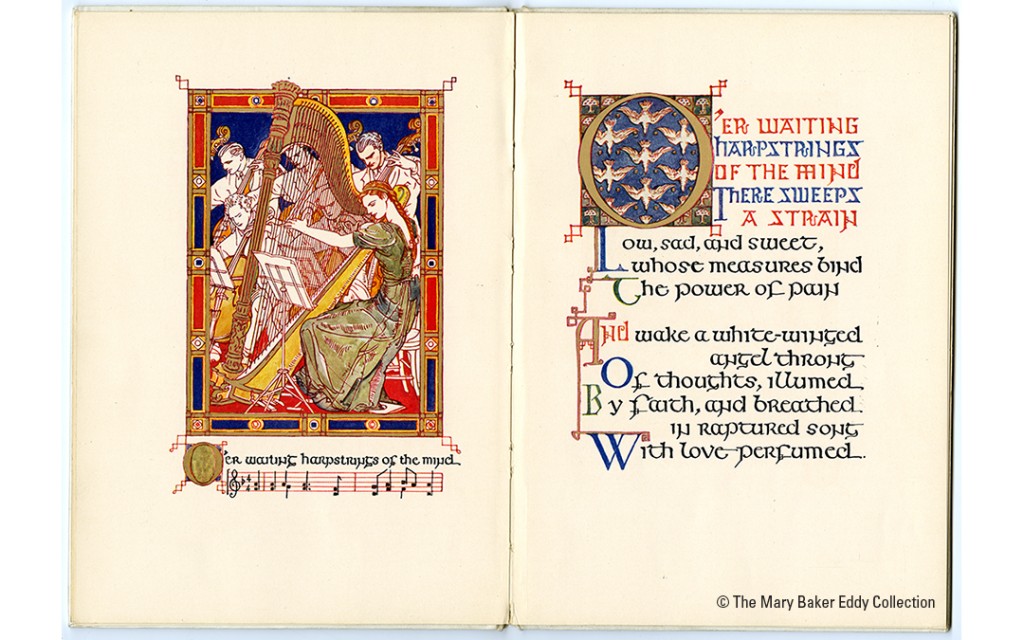 O'er waiting harpstrings of the mind
O'er waiting
harpstrings
of the mind
There sweeps
a strain
Low, sad, and sweet,
whose measures bind
The power of pain
And wake a white-winged
angel throng
Of thoughts, illumed
By faith, and breathed
in raptured song
With love perfumed.
© The Mary Baker Eddy Collection